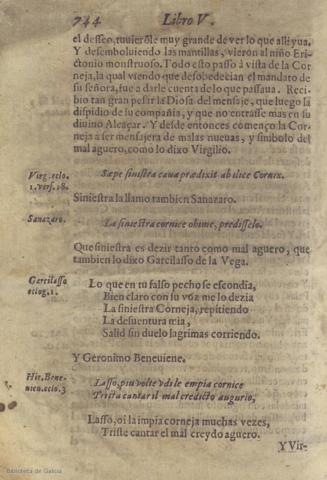 744 Libro V.
el desseo, tuuierõle muy grande de ver lo que alli yua.
Y desemboluiendo las mantillas, vieron al niño Eri-
ctonio monstruoso. Todo esto passò à vista de la Cor
neja, la qual viendo que desobedecian el mandato de
su señora, fue a darle cuenta de lo que passaua. Reci-
bio tan gran pesar la Diosa del mensaje, que luego la
dispidio de su compañia, y que no entrasse mas en su
diuino Alcaçar. Y desde entonces començo la Cor
neja a ser mensajera de malas nueuas, y simbolo del
mal aguero, como lo dixo Virgilio.
Virg. eclo.
1. vers. 18.
Sæpe sinistra caua prædixit ab ilice Cornix.
Siniestra la llamo tambien Sanazaro.
Sanazaro.
La siniestra cornice ohime, predisselo.
Que siniestra es dezir tanto como mal aguero, que
tambien lo dixo Garcilasso de la Vega.
Garcilasso
eclog. 1.
Lo que en tu falso pecho se escondia,
Bien claro con su voz me lo dezia
La siniestra Corneja, repitiendo
La desuentura mia,
Salid sin duelo lagrimas corriendo.
Y Geronimo Beneuiene.
Hie. Bene-
nien. eclo. 3
Lasso, piu volte vdi le empia cornice
Trista cantar il mal credicto augurio,
Lasso, oi la impia corneja muchas vezes,
Triste cantar el mal creydo aguero.
Y Vir-
Biblioteca de Galicia